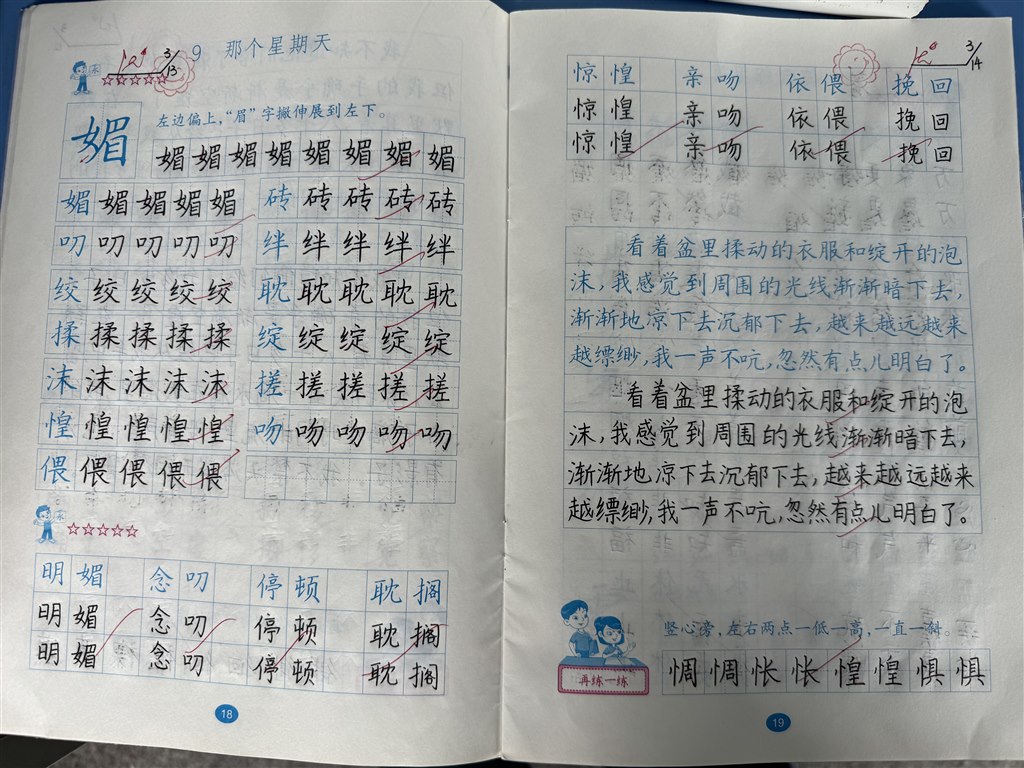 3/13
9 那个星期天
左边偏上，“眉”字撇伸展到左下。
媚
媚媚媚媚媚媚媚媚
媚媚媚媚媚 砖砖砖砖砖
叨叨叨叨叨 绊绊绊绊绊
绞绞绞绞绞 耽耽耽耽耽
揉揉揉揉揉 绽绽绽绽绽
沫沫沫沫沫 搓搓搓搓搓
惶惶惶惶惶 吻吻吻吻吻
偎偎偎偎偎
明媚 念叨 停顿 耽搁
明媚 念叨 停顿 耽搁
明媚 念叨 停顿 耽搁
18
3/14
惊惶 亲吻 依偎 挽回
惊惶 亲吻 依偎 挽回
惊惶 亲吻 依偎 挽回
看着盆里揉动的衣服和绽开的泡
沫，我感觉到周围的光线渐渐暗下去，
渐渐地凉下去沉郁下去，越来越远越来
越缥缈，我一声不吭，忽然有点儿明白了。
看着盆里揉动的衣服和绽开的泡
沫，我感觉到周围的光线渐渐暗下去，
渐渐地凉下去沉郁下去，越来越远越来
越缥缈，我一声不吭，忽然有点儿明白了。
竖心旁，左右两点一低一高，一直一斜。
再练一练
惆惆怅怅惶惶惧惧
19